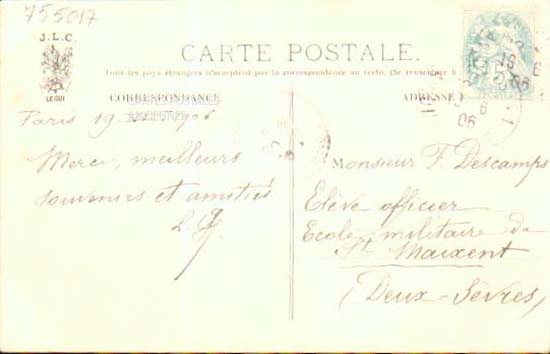 755017
J.L.C.
LE GUI
CARTE POSTALE.
Tous les pays étrangers n'acceptent pas la correspondance au recto. (Se renseigner à
CORRESPONDANCE
ADRESSE
Paris 19 1906
Merci, meilleurs
souvenirs et amitiés
Monsieur F. Descamps
Elève officier
Ecole militaire de
St Maixent
(Deux-Sèvres)